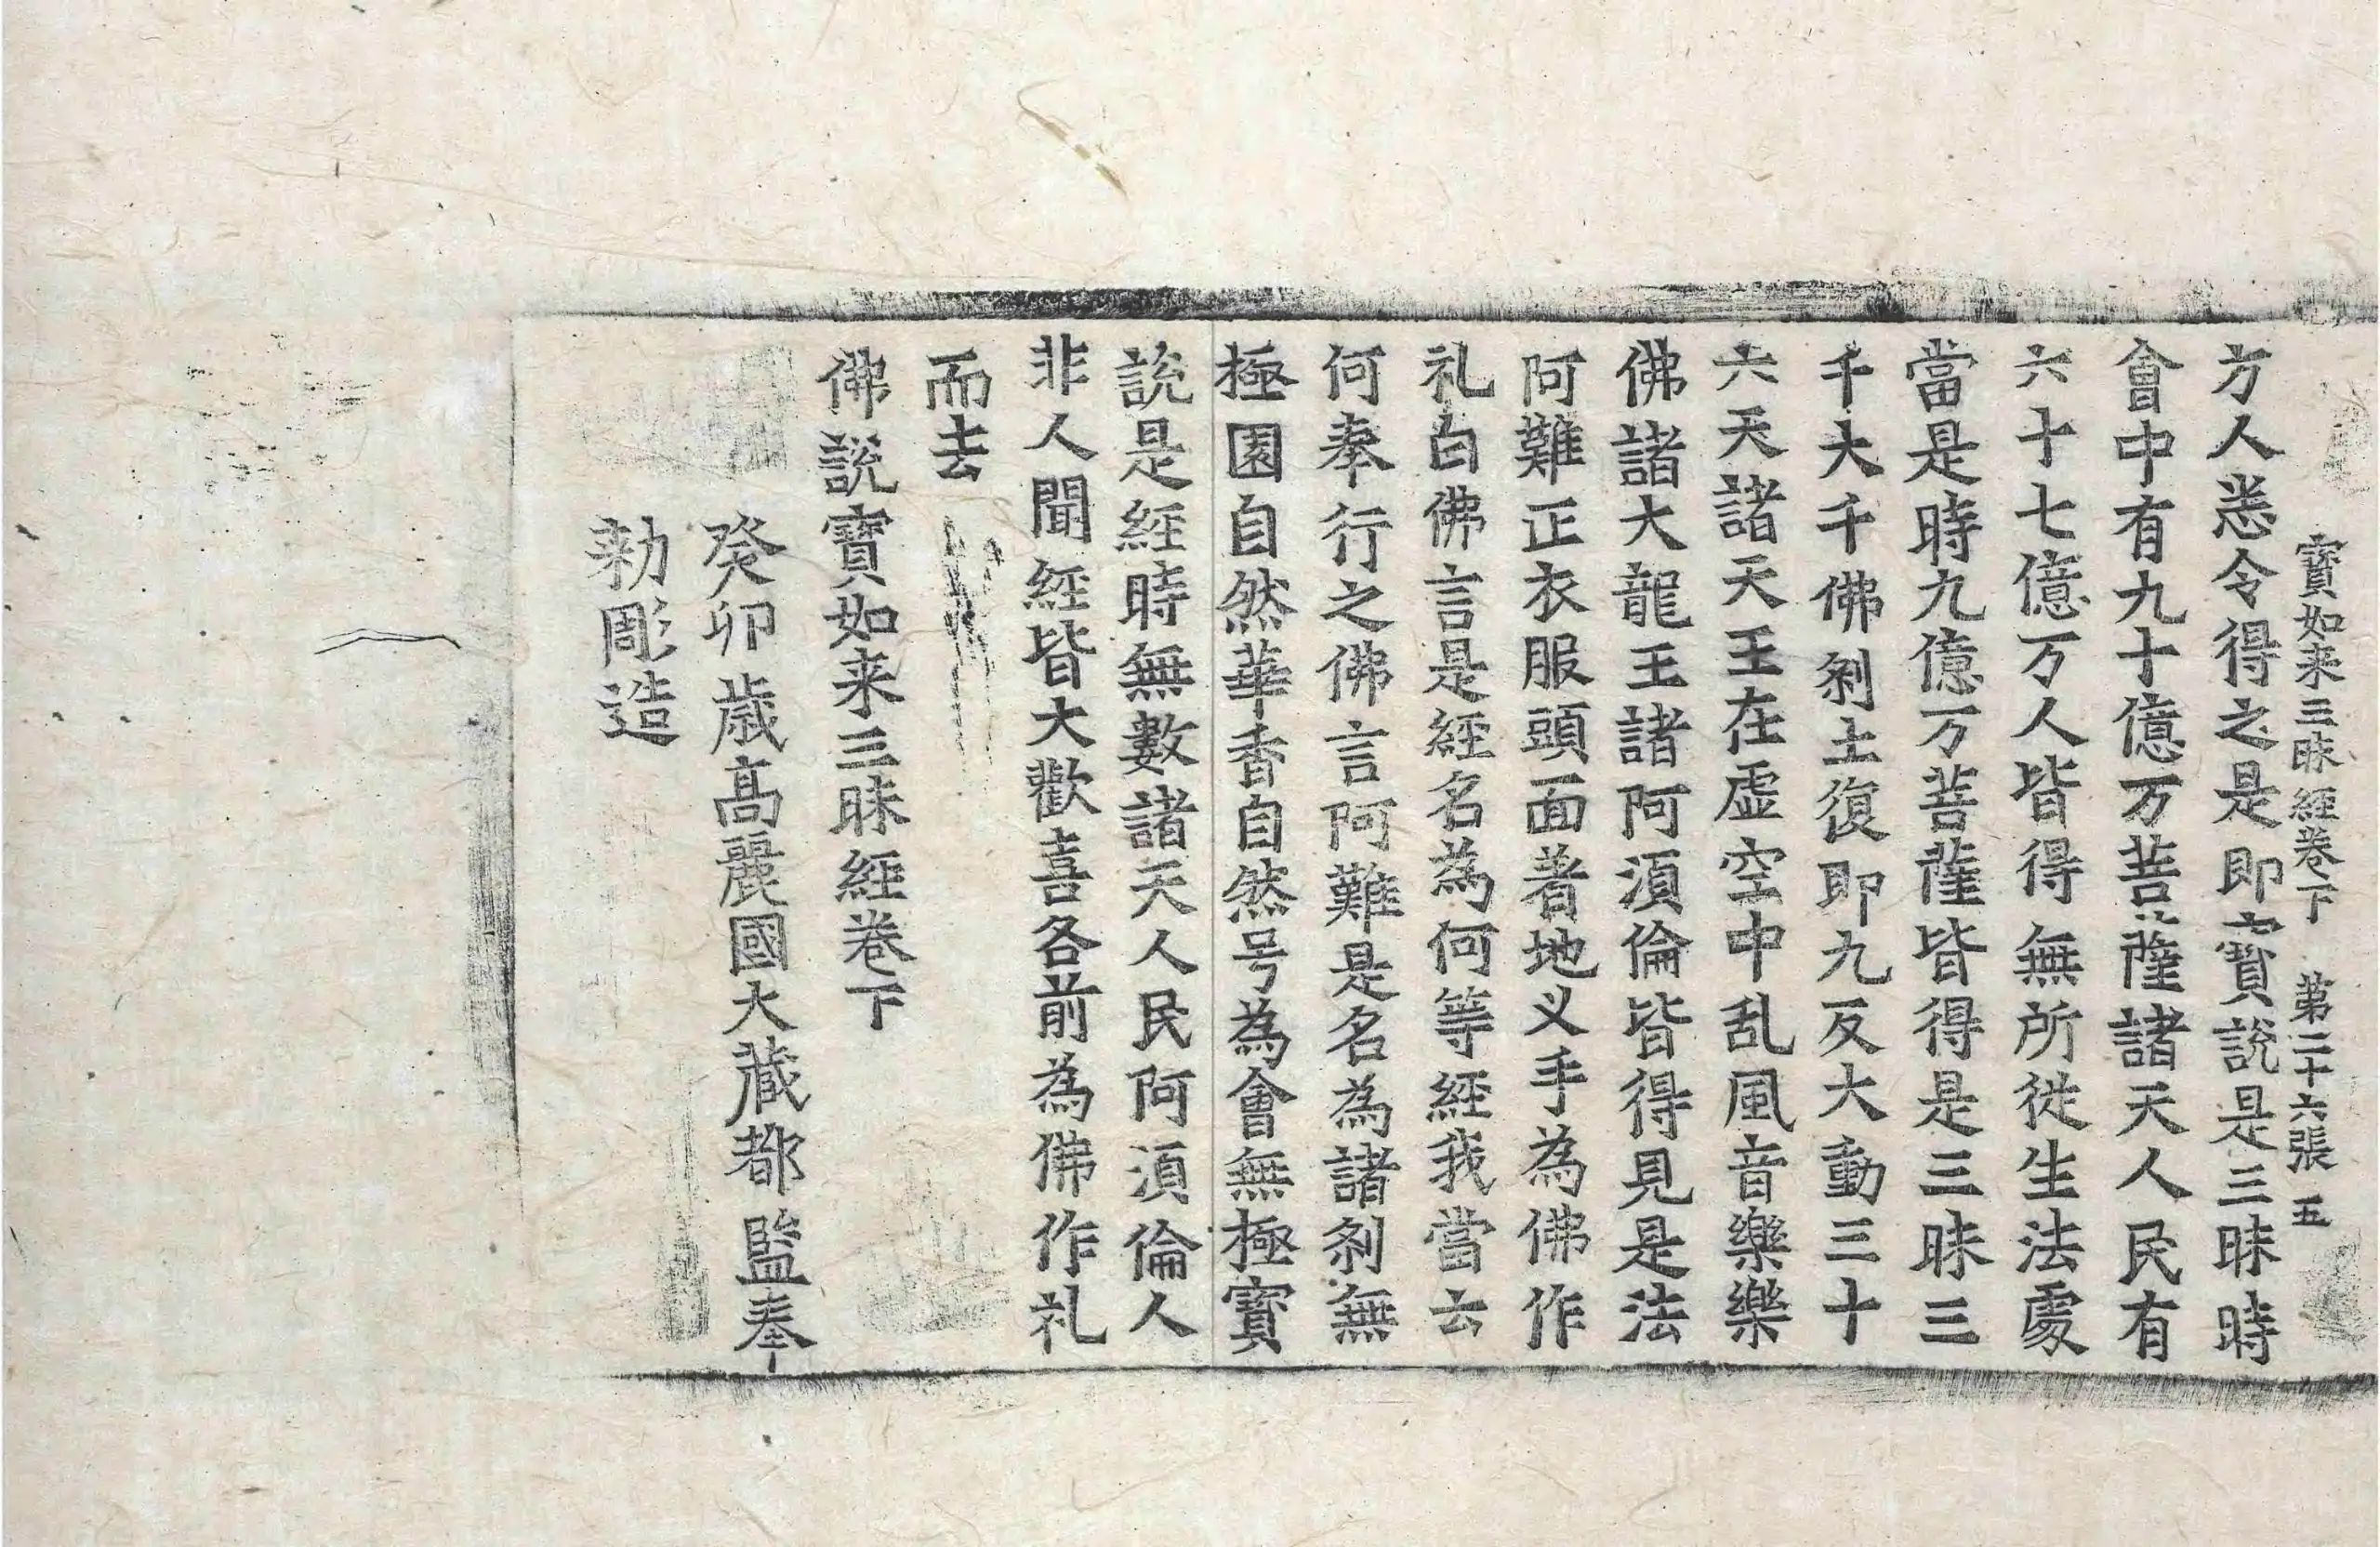 寶如来三昧經卷下 第二十六張 五
方人悉令得之是即寶說是三昧時
會中有九十億万菩薩諸天人民有
六十七億万人皆得無所從生法處
當是時九億万菩薩皆得是三昧三
千大千佛剎土復即九反大動三十
六天諸天王在虛空中乱風音樂樂
佛諸大龍王諸阿湏倫皆得見是法
阿難正衣服頭面著地义手為佛作
礼白佛言是經名為何等經我當云
何奉行之佛言阿難是名為諸剎無
極園自然華香自然号為會無極寶
說是經時無數諸天人民阿湏倫人
非人聞經皆大歡喜各前為佛作礼
而去
佛說寶如来三昧經卷下
癸卯歲高麗國大藏都監奉
勑彫造